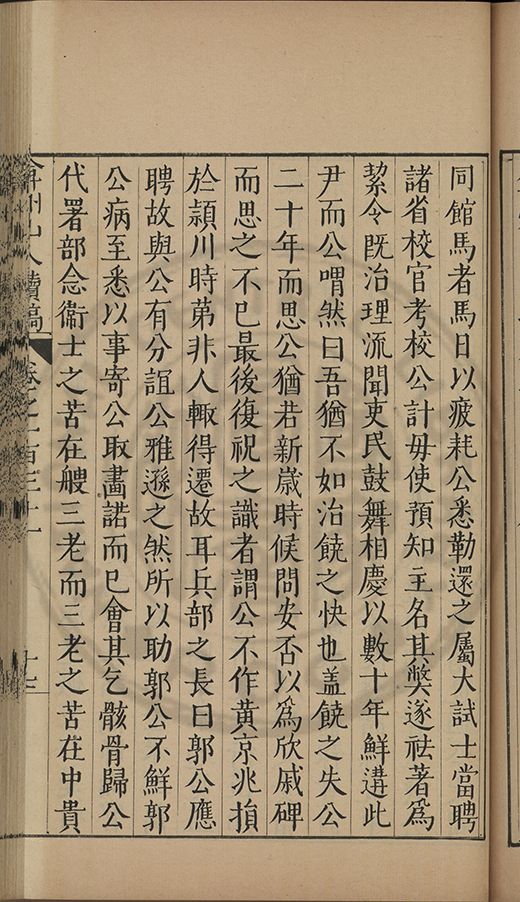 同館馬者馬日以疲耗公悉勒還之屬大試士當聘
諸省校官考校公計毋使預知主名其獘遂祛著爲
絜令既治理流聞吏民鼓舞相慶以數十年鮮遘此
尹而公喟然曰吾猶不如治饒之快也盖饒之失公
二十年而思公猶若新歳時候問安否以爲欣戚碑
而思之不已最後復祝之識者謂公不作黄京兆損
於潁川時苐非人輙得遷故耳兵部之長曰郭公應
聘故與公有分誼公雅遜之然所以助郭公不鮮郭
公病至悉以事寄公取畵諾而已會其乞骸骨歸公
代署部念衞士之苦在艘三老而三老之苦在中貴
弇州山人續稿 卷之一百三十一